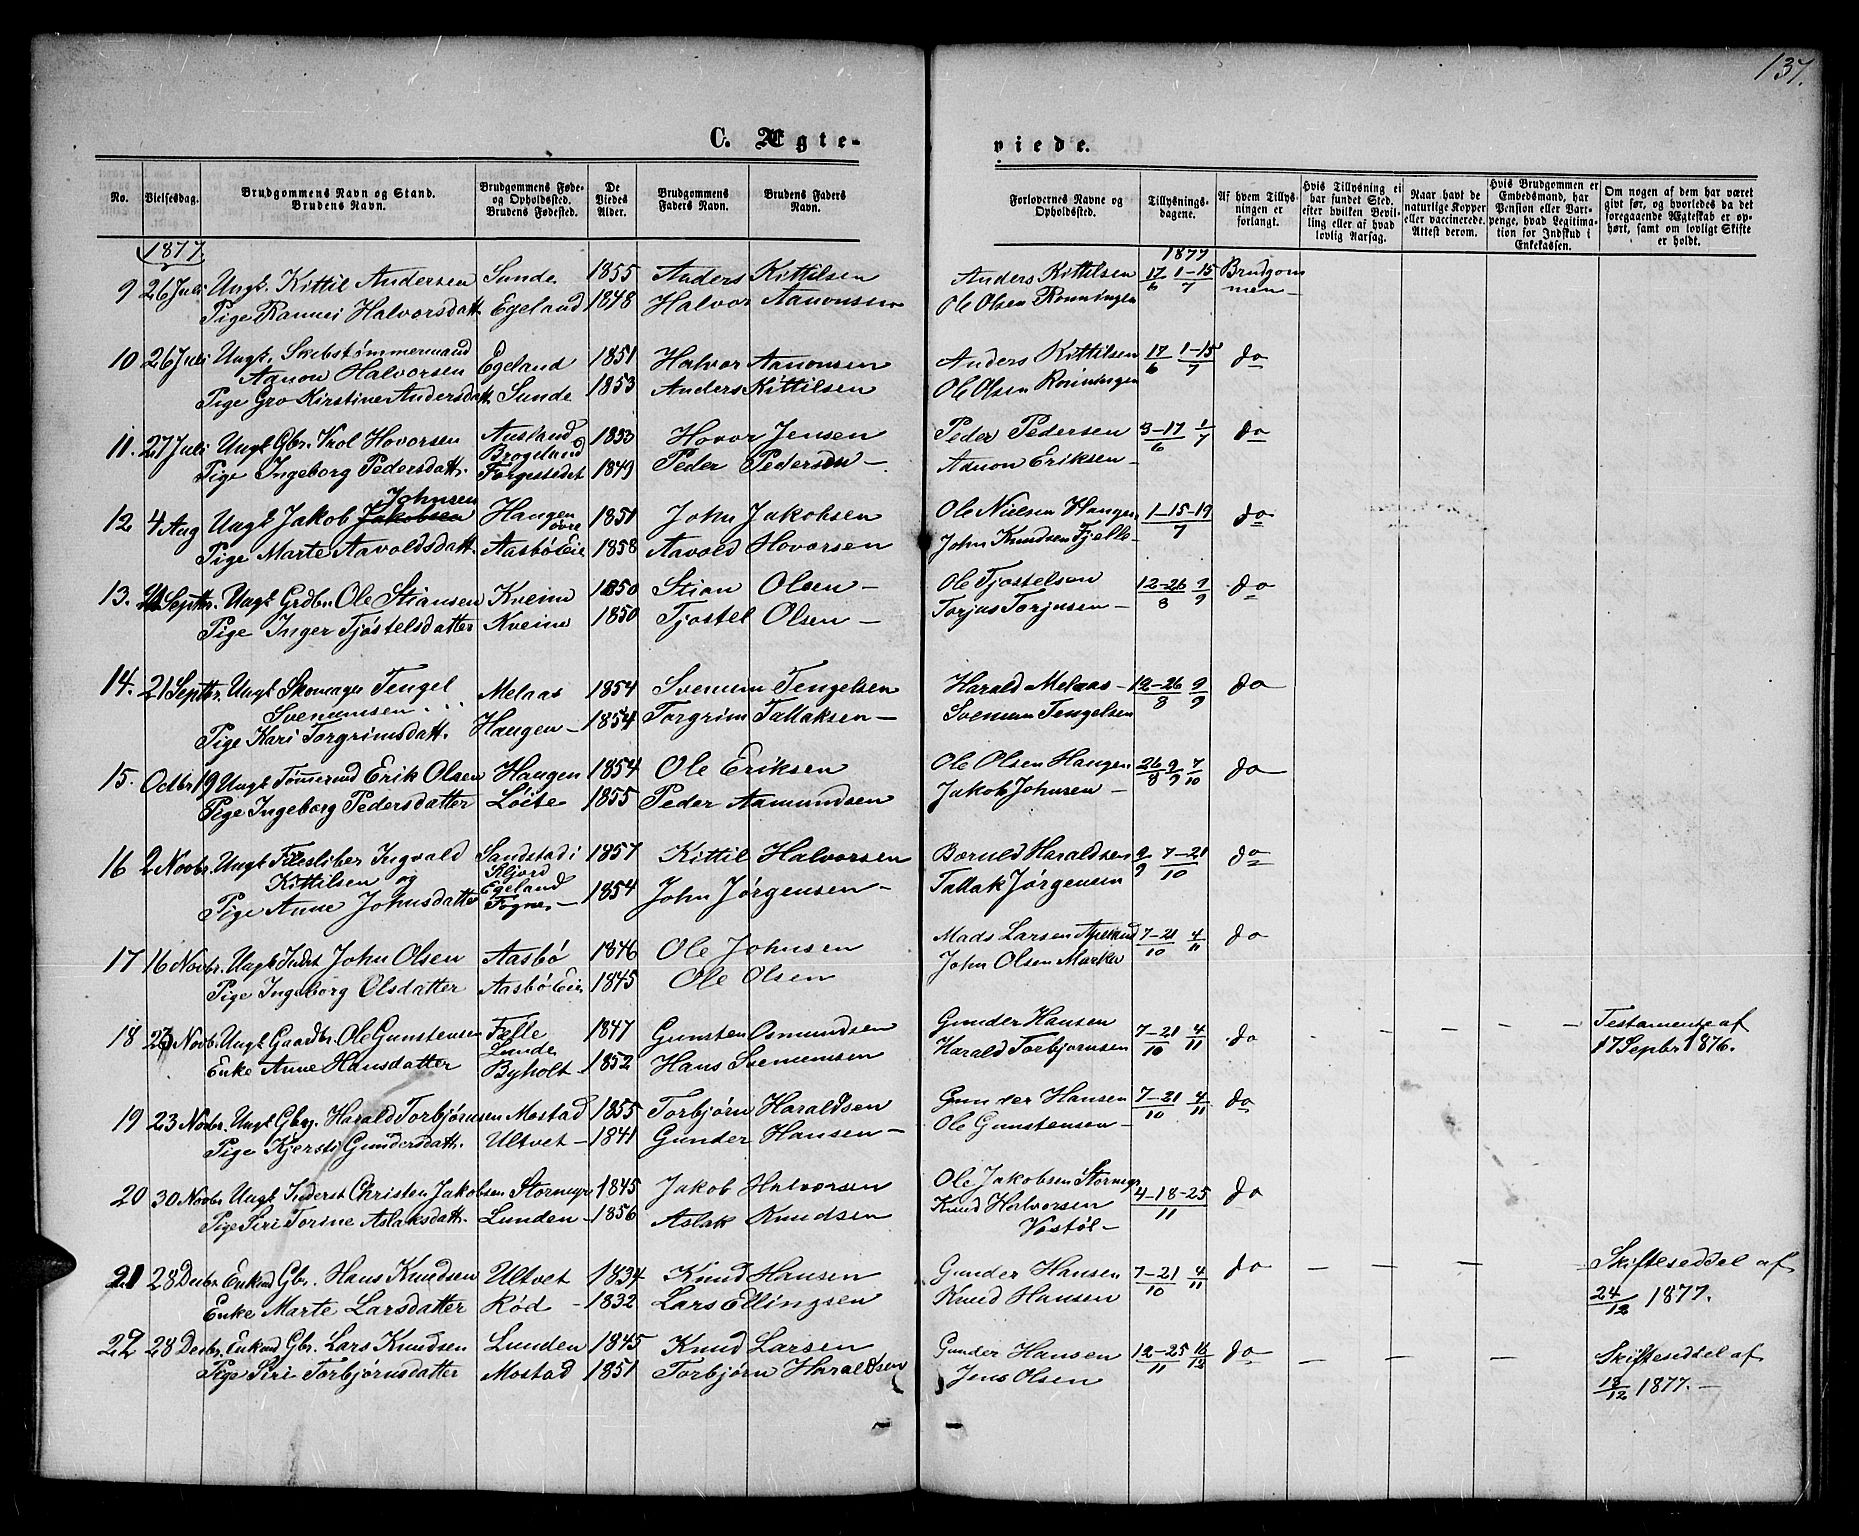 137.
C. Ægte-
viede.
No.
Vielsesdag.
Brudgommens Navn og Stand.
Brudens Navn.
Brudgommens Føde-
og Opholdssted.
Brudens Fødested.
De
Viedes
Alder.
Brudgommens
Faders Navn.
Brudens Faders
Navn.
Forlovernes Navne og
Opholdssted.
Tillysnings-
dagene.
Af hvem Tillys-
ningen er
forlangt.
Hvis Tillysning ei
har fundet Sted,
efter hvilken Bevil-
ling eller af hvad
lovlig Aarsag.
Naar havt de
naturlige Kopper
eller vaccinerede.
Attest derom.
Hvis Brudgommen er
Embedsmand, har
Pension eller Vart-
penge, hvad Legitima-
tion for Indskud i
Enkekassen.
Om nogen af dem har været
givt før, og hvorledes da det
foregaaende Ægteskab er op-
hørt, samt om lovligt Skifte
er holdt.
1877 1877
9 26 Juli Ungk. Kittil Andersen Sunde 1855 Anders Kittilsen Anders Kittilsen 17/6 1-15/7 Brudgom
Pige Rannei Halvorsdatt. Egeland 1848 Halvor Aanonsen Ole Olsen Rönningen men -
10 26 Juli Ungk. Skibstømmermand Egeland 1851 Halvor Aanonsen Anders Kittilsen 17/6 1-15/7 do
Aanon Halvorsen
Pige Gro Kirstine Andersdatt. Sunde 1853 Anders Kittilsen Ole Olsen Rönningen
11. 27 Juli Ungk Gbr. Hovorsen Ausland 1853 Hovor Jensen Peder Pedersen 3-17/6 1/7 do
Brogeland
Pige Ingeborg Pedersdatt. 1849 Peder Pedersen - Aanon Eriksen -
Johnsen
12 4 Aug Ungk Jakob Jakobsen Haugen 1851 John Jakobsen Ole Nielsen Haugen 1-15-19/7 do
øvre
Pige Marte Aavoldsdatt. Aasbö Eie 1858 Aavold Hovorsen John Knudsen Fjelle -
13. Septbr. Ungk Grdbr. Ole Stiansen Kveim 1850 Stian Olsen - Ole Tjöstelsen 12-26/8 9/9 do
Pige Inger Tjöstelsdatter Kveim 1850 Tjöstel Olsen - Torjus Torjusen -
14. 21 Septbr. Ungk Skomager Tengel Melaas 1854 Svenum Tengelsen Harald Melaas - 12-26/8 9/9 do
Svenumsen
Pige Kari Torgrimsdatt. Haugen - 1854 Torgrim Tallaksen - Svenum Tengelsen
15. Octbr 19 Ungk Tömermd Erik Olsen Haugen 1854 Ole Eriksen Ole Olsen Haugen 26/8 9/9 7/10 do
Pige Ingeborg Pedersdatter Löite 1855 Peder Aamundsen Jakob Johnsen -
16 2 Novbr. Ungk Ingvald Sandstad i 1857 Kittil Halvorsen Böruld Haraldsen 9/9 7-21/10 do
Kittilsen og Egeland
Pige Anne Johnsdatter Fogne - 1854 John Jørgensen - Tallak Jørgensen
17 16 Novbr. Ungk Indst John Olsen Aasbö 1846 Ole Johnsen Mads Larsen 7-21/10 4/11 do
Pige Ingeborg Olsdatter Aasbö Eie 1845 Ole Olsen John Olsen Marka
18 23 Novb. Ungk Gaardbr. Ole Gunstensen Fælle 1847 Gunsten Osmundsen Gunder Hansen 7-21/10 4/11 do - - - - Testamente af
Lunde
Enke Anne Hansdatter Byholt - 1852 Hans Svenumsen Harald Torbjørnsen 17 Septbr 1876.
19 23 Novbr. Ungk Gbr. Harald Torbjørnsen Mostad 1855 Torbjørn Haraldsen Gunder Hansen 7-21/10 4/11 do
Pige Kjersti Gundersdatt. Ultvet - 1841 Gunder Hansen - Ole Gunstensen -
20 30 Novbr Ungk Inderst Christen Jakobsen Stormyr 1845 Jakob Halvorsen Ole Jakobsen Stormyr 4-18-25/11 do
Pige Siri Torine Aslaksdatt. Lunden - 1856 Aslak Knudsen Knud Halvorsen
Vostöl -
21 28 Decbr. Enkmd Gbr. Hans Knudsen Ultvet 1834 Knud Hansen Gunder Hansen 7-21/10 4/11 do - - - Skifteseddel af
Enke Marte Larsdatter Röd - 1832 Lars Ellingsen Knud Hansen 24/12 1877.
22 28 Decbr. Enkmd Gbr. Lars Knudsen Lunden 1845 Knud Larsen Gunder Hansen 12-25/11 16/12 do - - - Skifteseddel af
Pige Siri Torbjørnsdatter Mostad 1851 Torbjørn Haraldsen Jens Olsen 18/12 1877. -